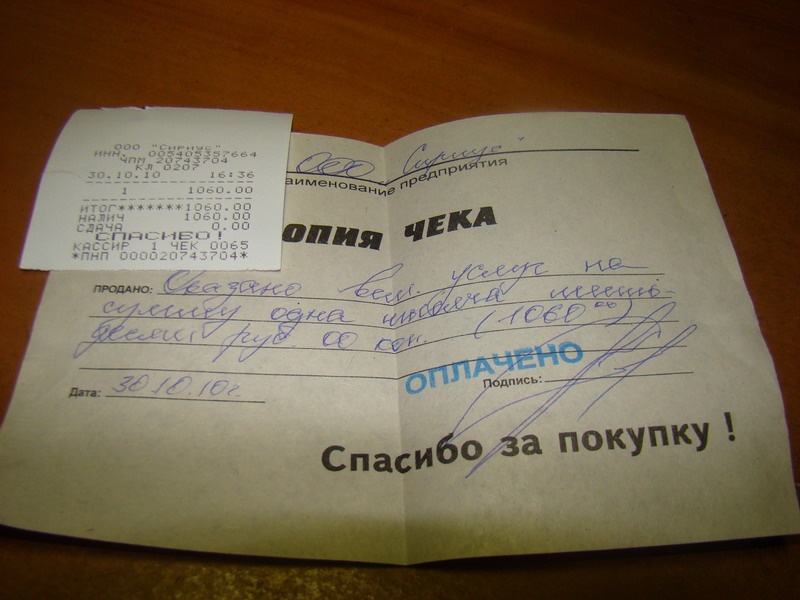 ООО "Сириус"
ИНН. 005405357664
ЧПМ 20743704
КЛ 0207
30.10.10 16:36
1 1060.00
ИТОГ*******1060.00
НАЛИЧ 1060.00
СДАЧА 0.00
СПАСИБО!
КАССИР 1 ЧЕК 0065
*ПНП 000020743704*
ООО „Сириус"
аименование предприятия
ОПИЯ ЧЕКА
ПРОДАНО: Оказано вет. услуг на
сумму одна тысяча шесть-
десят руб. 00 коп. (1060 00)
ОПЛАЧЕНО
Дата: 30.10.10г. Подпись:
Спасибо за покупку !